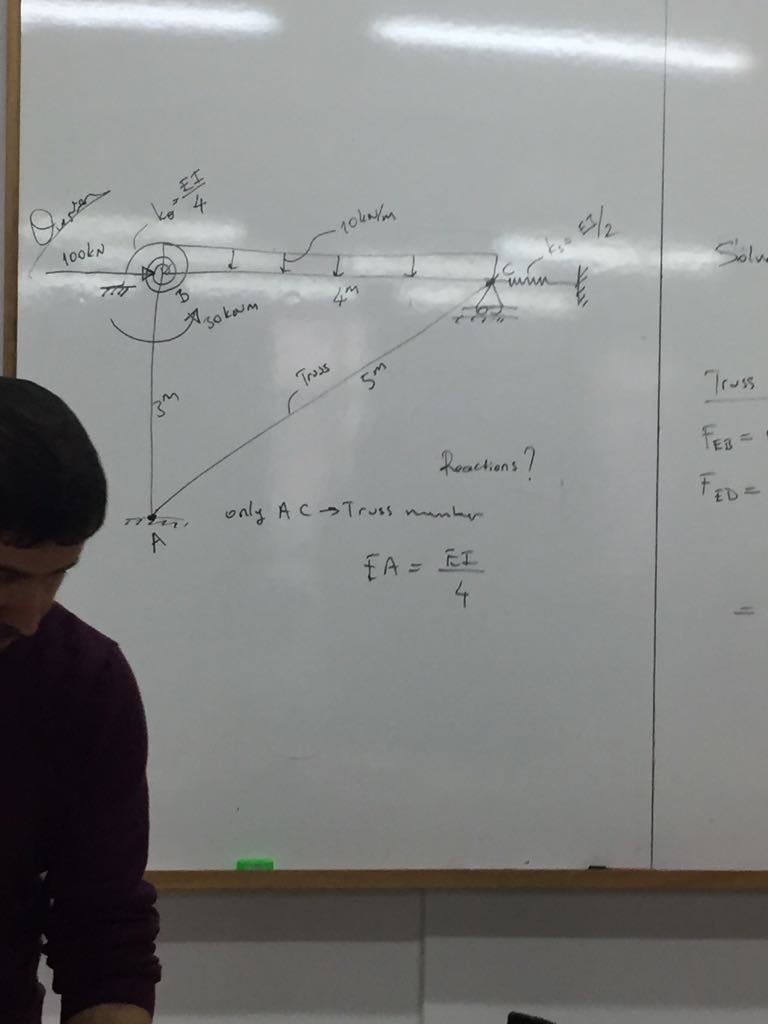 Question
kθ = EI/4
100kN
10kN/m
ks = EI/2
B
C
4m
30kNm
Truss
5m
3m
Reactions?
only AC → Truss member
A
EA = EI/4
Truss
FEB =
FED =
=